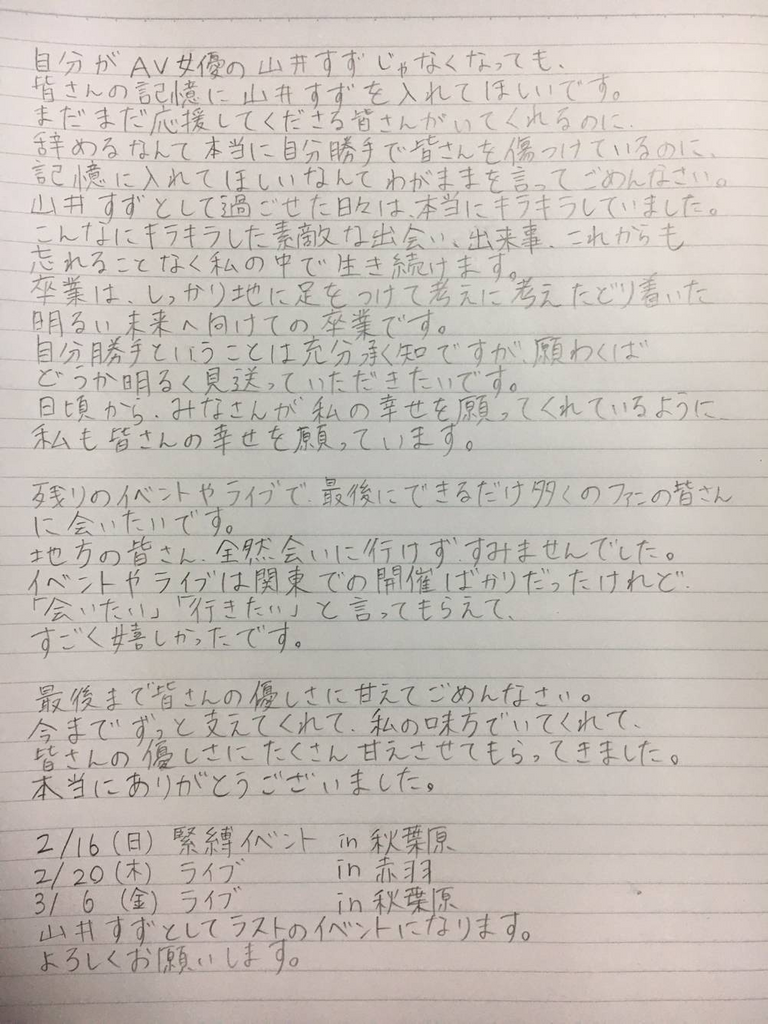 自分がAV女優の山井すずじゃなくなっても、
皆さんの記憶に山井すずを入れてほしいです。
まだまだ応援してくださる皆さんがいてくれるのに、
辞めるなんて本当に自分勝手で皆さんを傷つけているのに、
記憶に入れてほしいなんてわがままを言ってごめんなさい。
山井すずとして過ごせた日々は、本当にキラキラしていました。
こんなにキラキラした素敵な出会い、出来事、これからも
忘れることなく私の中で生き続けます。
卒業は、しっかり地に足をつけて考えに考えたどり着いた
明るい未来へ向けての卒業です。
自分勝手ということは充分承知ですが、願わくば
どうか明るく見送っていただきたいです。
日頃から、みなさんが私の幸せを願ってくれているように
私も皆さんの幸せを願っています。
残りのイベントやライブで、最後にできるだけ多くのファンの皆さん
に会いたいです。
地方の皆さん、全然会いに行けず、すみませんでした。
イベントやライブは関東での開催ばかりだったけれど、
「会いたい」「行きたい」と言ってもらえて、
すごく嬉しかったです。
最後まで皆さんの優しさに甘えてごめんなさい。
今までずっと支えてくれて、私の味方でいてくれて、
皆さんの優しさにたくさん甘えさせてもらってきました。
本当にありがとうございました。
2/16(日) 緊縛イベント in 秋葉原
2/20(木) ライブ in 赤羽
3/6(金) ライブ in 秋葉原
山井すずとしてラストのイベントになります。
よろしくお願いします。